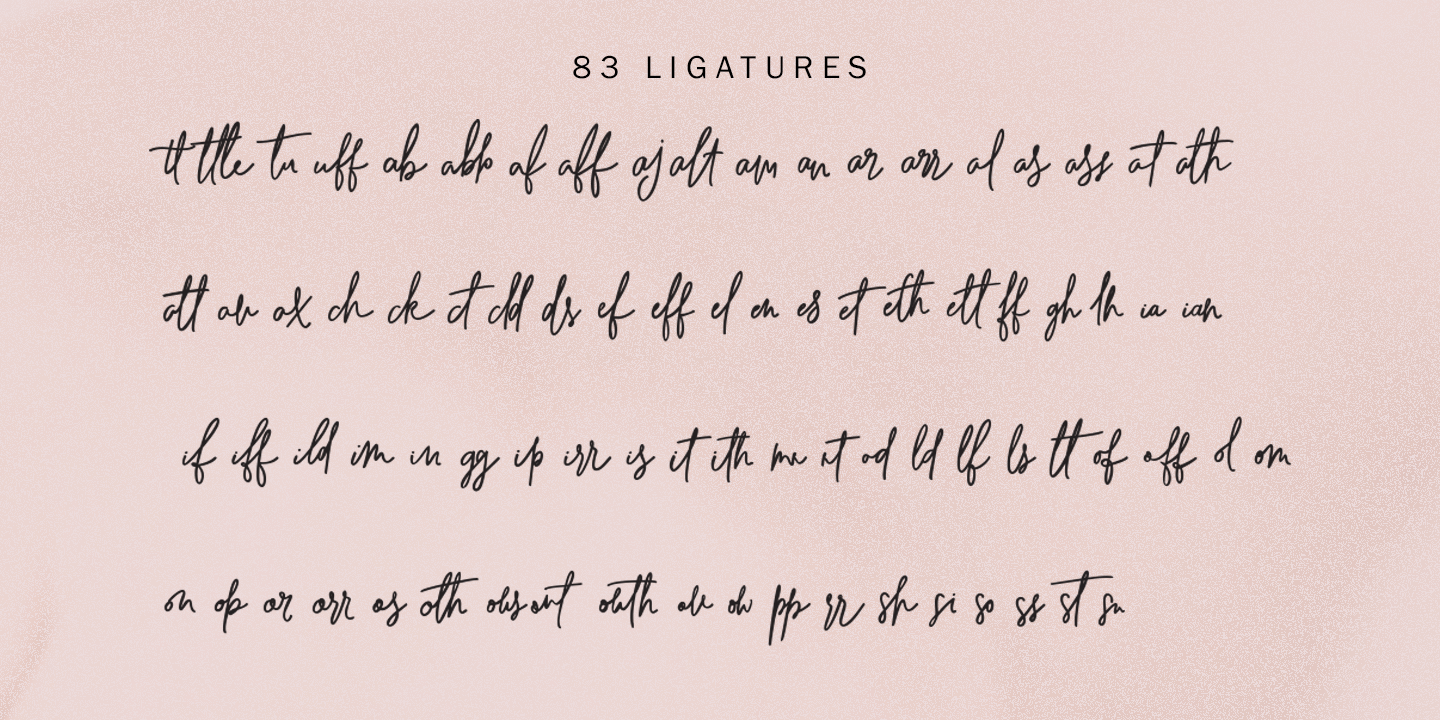 83 LIGATURES
tt ttle tu uff ab abb af aff aj alt am an ar arr al as ass at ath
att au ax ch ck ct dd ds ef eff el en es et eth ett ff gh lh ia ian
if iff ild im in gg ip irr is it ith mr nt od ld lf ls tt of off ol om
on op or arr os oth ous out outh ov ow pp rr sh si so ss st su